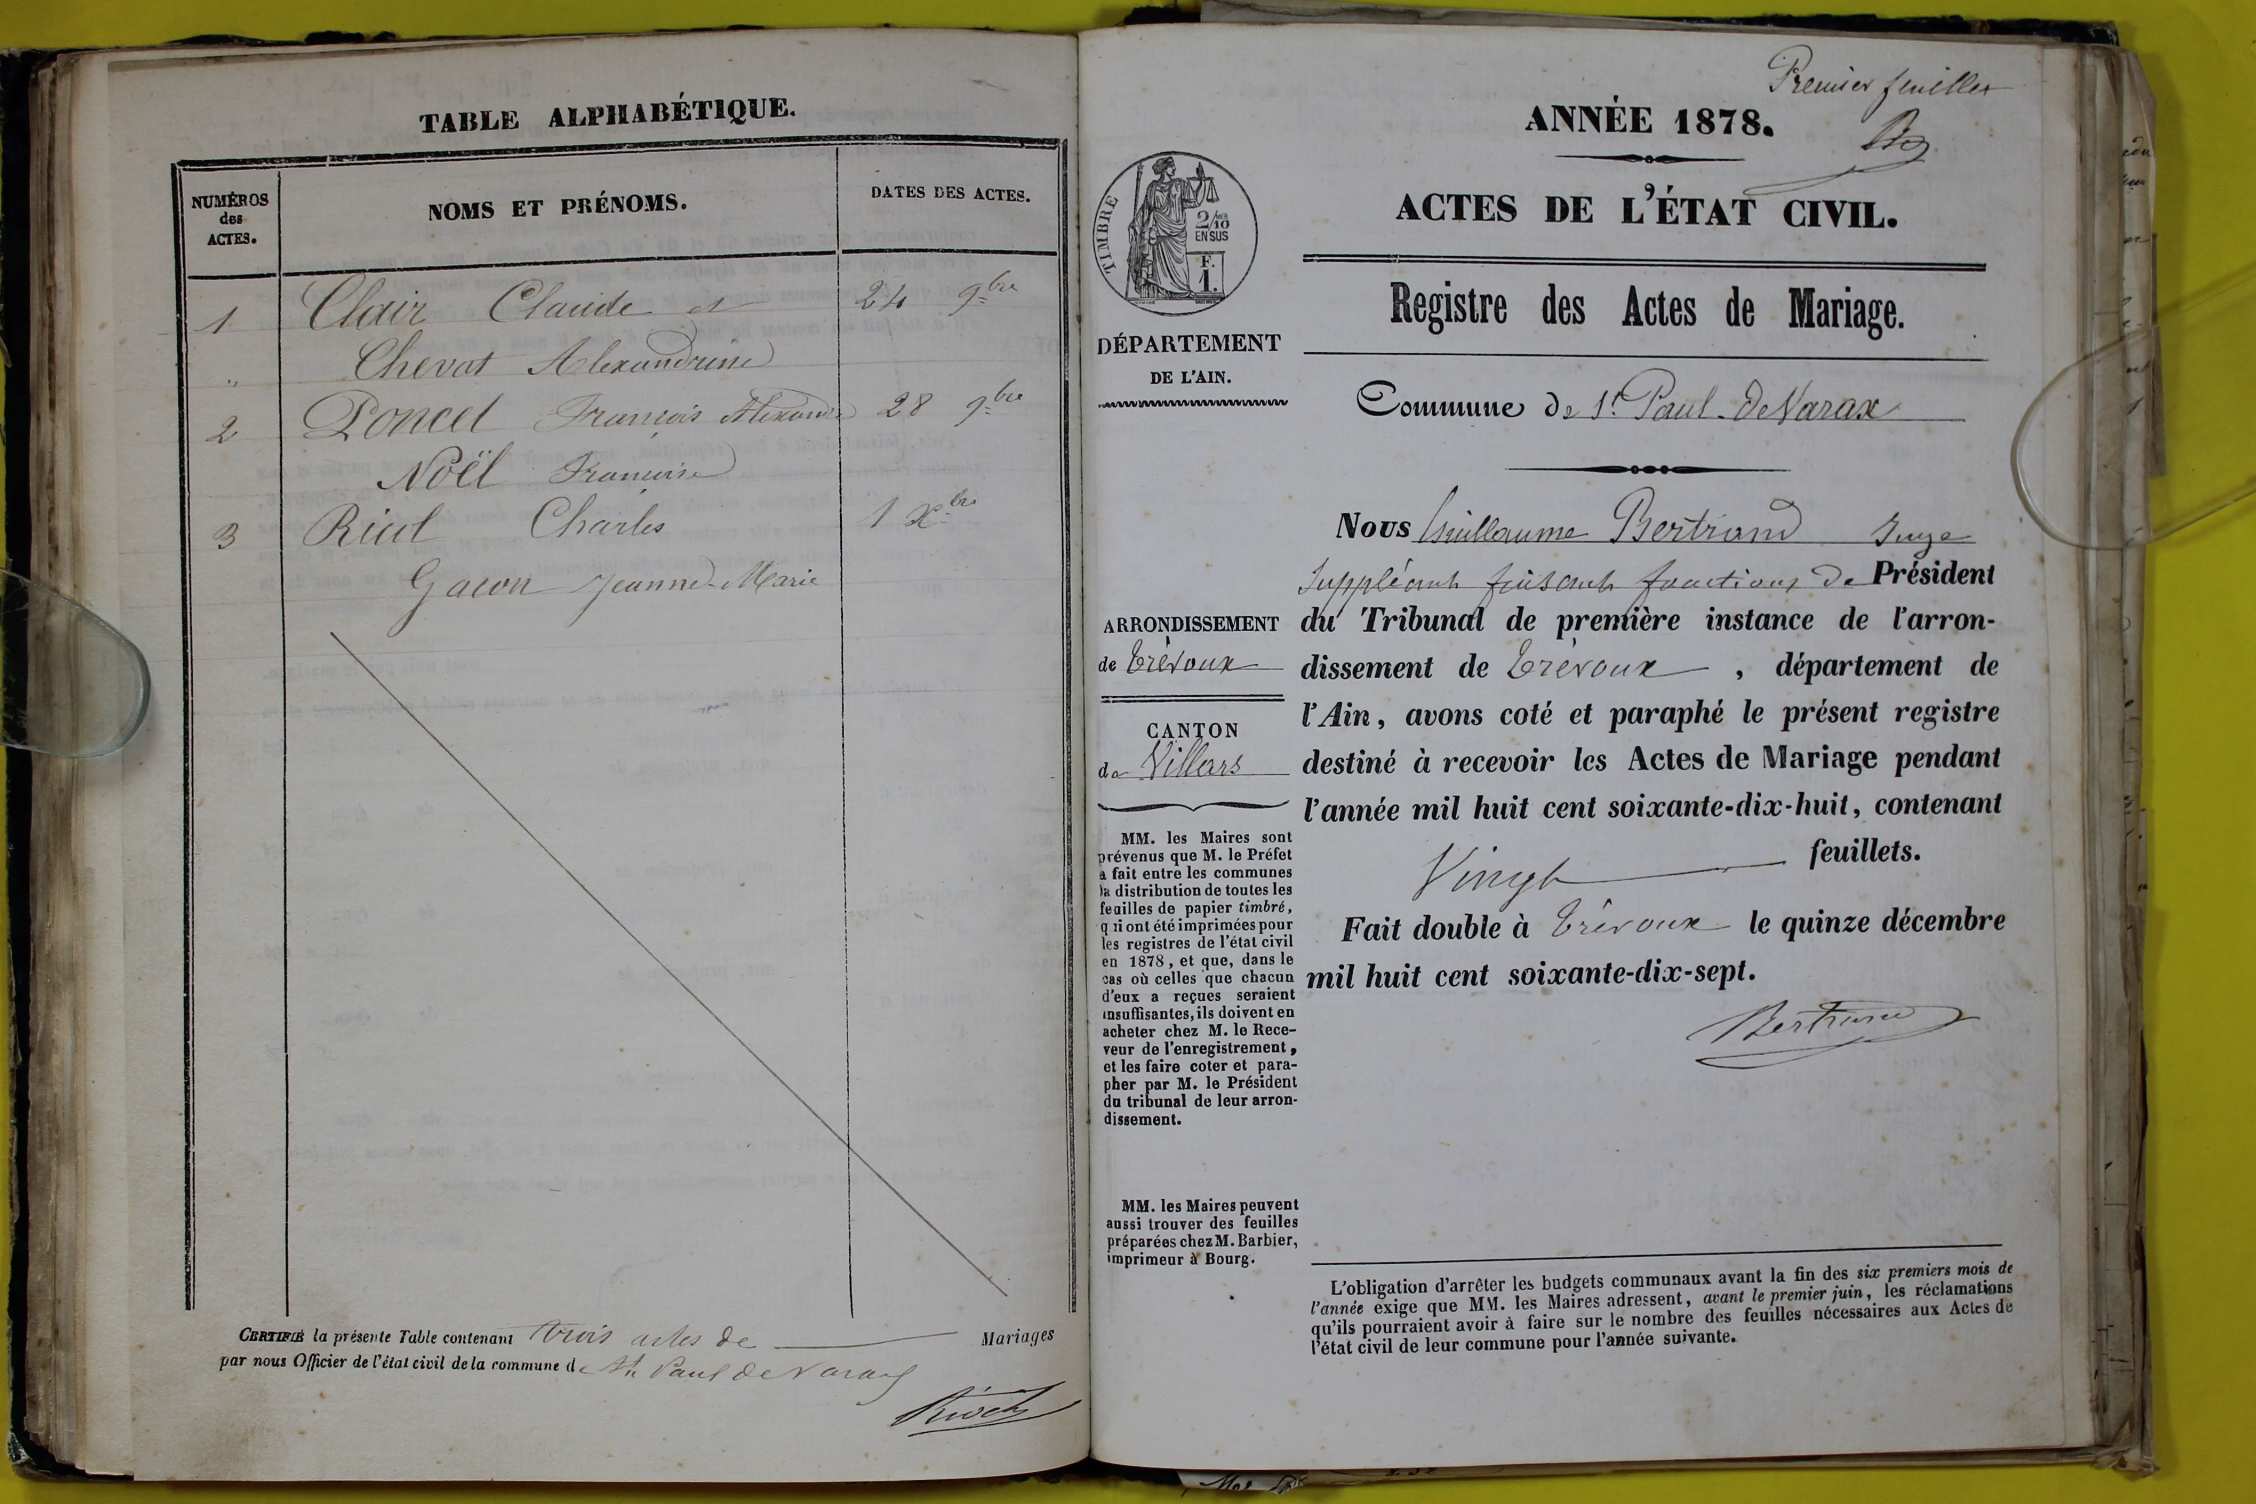 TABLE ALPHABÉTIQUE.
NUMÉROS
des
ACTES.
NOMS ET PRÉNOMS.
DATES DES ACTES.
1 Clair Claude et 24 9bre
" Chevat Alexandrine
2 Poncet François Alexandre 28 9bre
Noël Francoise
3 Riul Charles 1 Xbre
Gacon Jeanne-Marie
CERTIFIÉ la présente Table contenant trois actes de Mariages
par nous Officier de l'état civil de la commune de St Paul de Varax
Premier feuillet
ANNÉE 1878.
ACTES DE L'ÉTAT CIVIL.
TIMBRE
2/10
EN SUS
F.
1.
Registre des Actes de Mariage.
DÉPARTEMENT
DE L'AIN.
Commune de St Paul-de Varax
Nous Guillaume Bertrand Juge
Suppléant faisant fonctions de Président
du Tribunal de première instance de l'arron-
dissement de Trévoux, département de
l'Ain, avons coté et paraphé le présent registre
destiné à recevoir les Actes de Mariage pendant
l'année mil huit cent soixante-dix-huit, contenant
Vingt feuillets.
Fait double à Trévoux le quinze décembre
mil huit cent soixante-dix-sept.
Bertrand
ARRONDISSEMENT
de Trévoux
CANTON
de Villars
MM. les Maires sont
prévenus que M. le Préfet
a fait entre les communes
la distribution de toutes les
feuilles de papier timbré,
qui ont été imprimées pour
les registres de l'état civil
en 1878, et que, dans le
cas où celles que chacun
d'eux a reçues seraient
insuffisantes, ils doivent en
acheter chez M. le Rece-
veur de l'enregistrement,
et les faire coter et para-
pher par M. le Président
du tribunal de leur arron-
dissement.
MM. les Maires peuvent
aussi trouver des feuilles
préparées chez M. Barbier,
imprimeur à Bourg.
L'obligation d'arrêter les budgets communaux avant la fin des six premiers mois de
l'année exige que MM. les Maires adressent, avant le premier juin, les réclamations
qu'ils pourraient avoir à faire sur le nombre des feuilles nécessaires aux Actes de
l'état civil de leur commune pour l'année suivante.